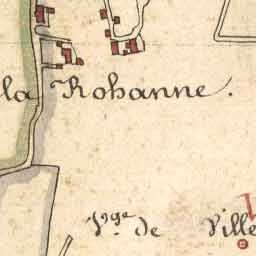 la Rohanne.
Vge. de Ville